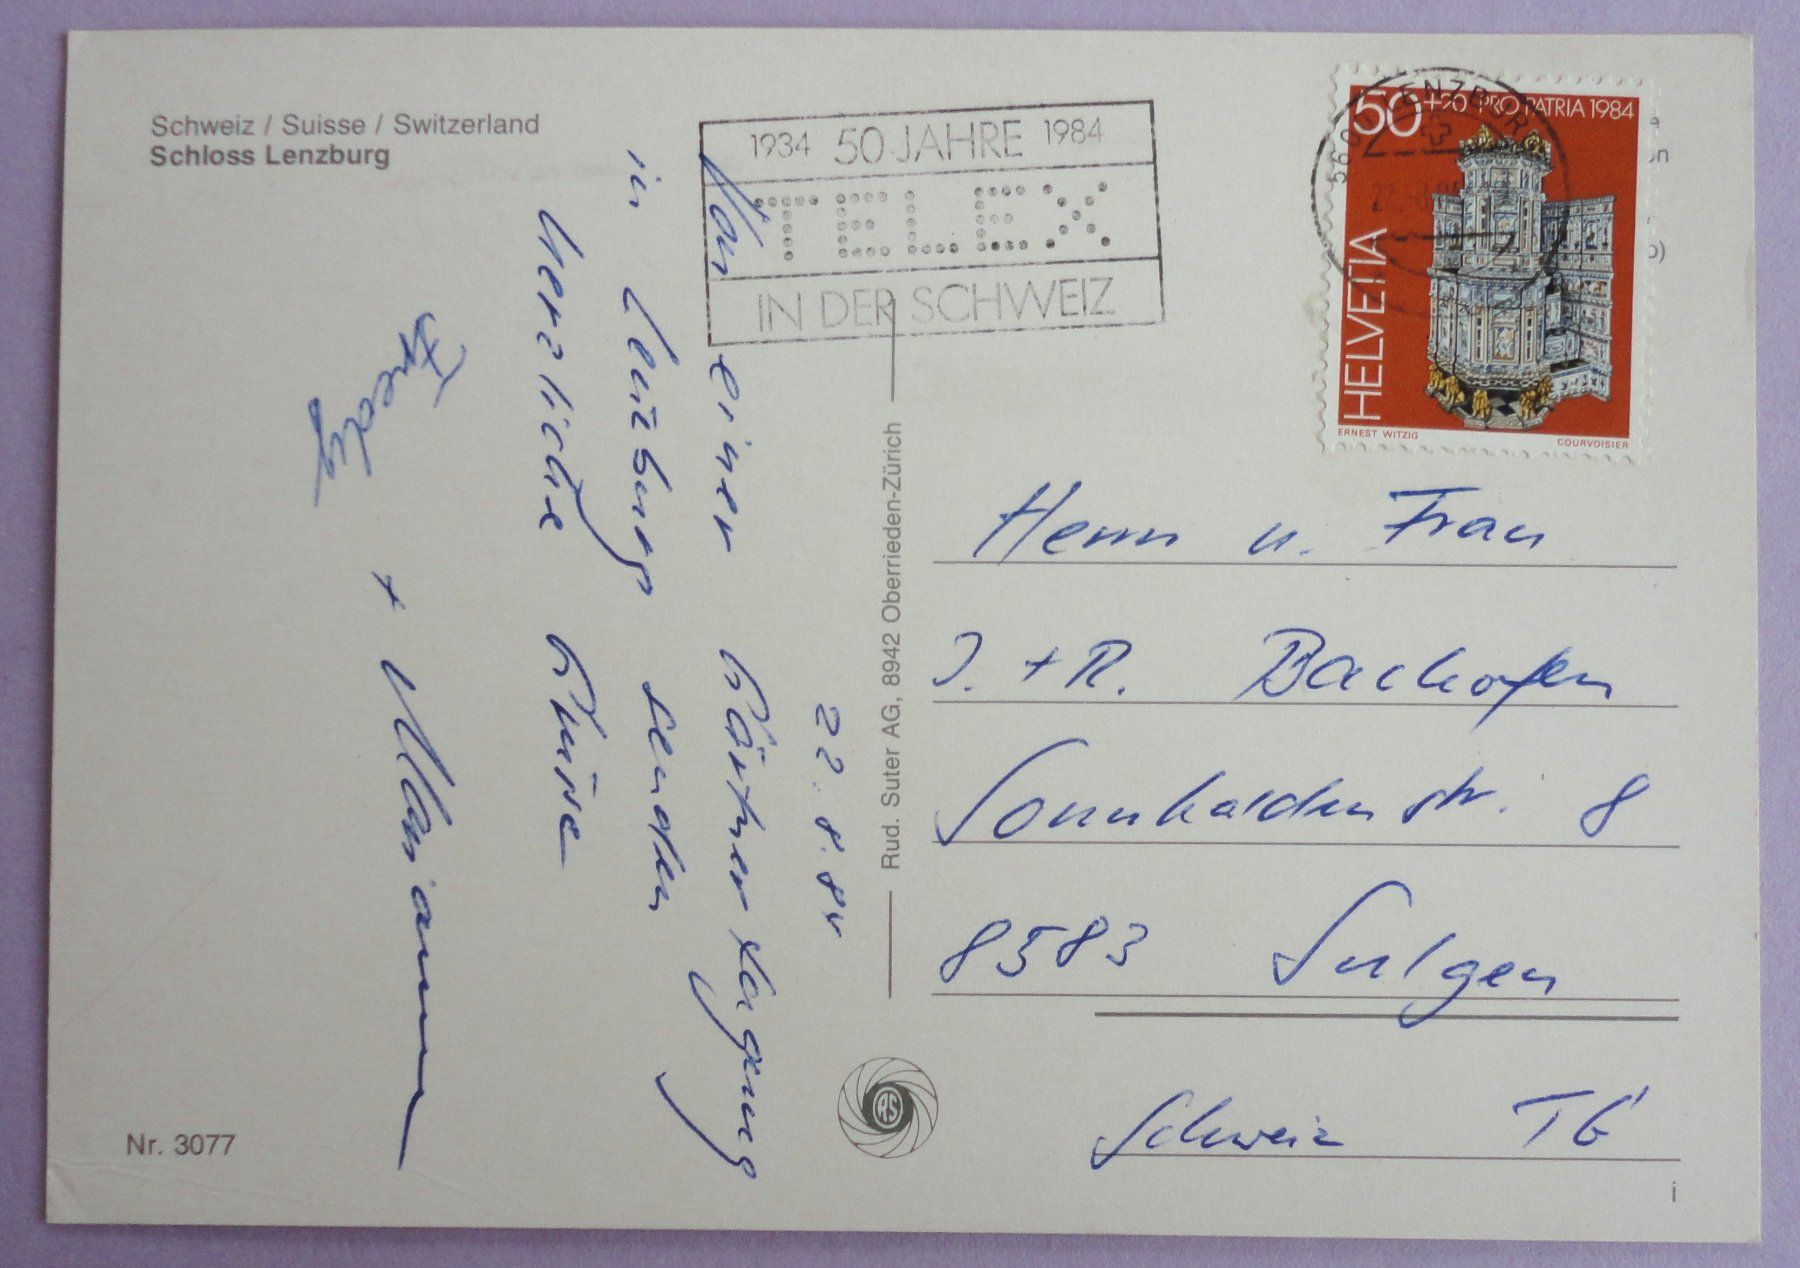 Schweiz / Suisse / Switzerland
Schloss Lenzburg
1934 50 JAHRE 1984
TELEX
IN DER SCHWEIZ
5600 LENZBURG
50 +20 PRO PATRIA 1984
HELVETIA
ERNEST WITZIG
COURVOISIER
22.8.84
Von einer Gärtnertagung
in Lenzburg senden
herzliche Grüsse
Fredy + Marianne
Rud. Suter AG, 8942 Oberrieden-Zürich
Herrn u. Frau
J. + R. Bachofen
Sonnhaldenstr. 8
8583 Sulgen
Schweiz TG
RS
Nr. 3077
i